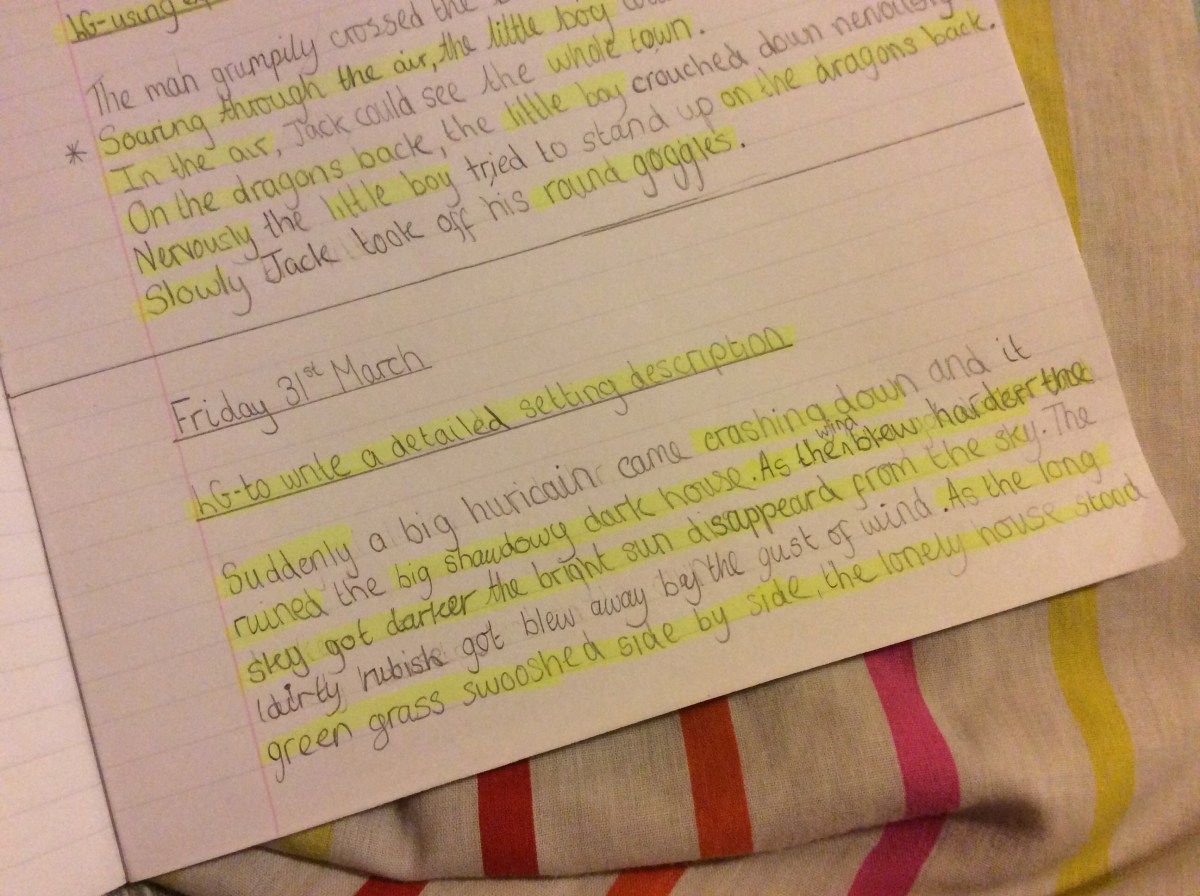 LG-using
The man grumpily crossed the
* Soaring through the air, the little boy
In the air, Jack could see the whole town.
On the dragons back, the little boy crouched down nervously
Nervously the little boy tried to stand up on the dragons back.
Slowly Jack took off his round goggles.
Friday 31st March
LG-to write a detailed setting description
Suddenly a big huricain came crashing down and it
ruined the big shawdowy dark house. As the wind blew harder the
sky got darker the bright sun disappeard from the sky. The
dirty rubish got blew away by the gust of wind. As the long
green grass swooshed side by side, the lonely house stood